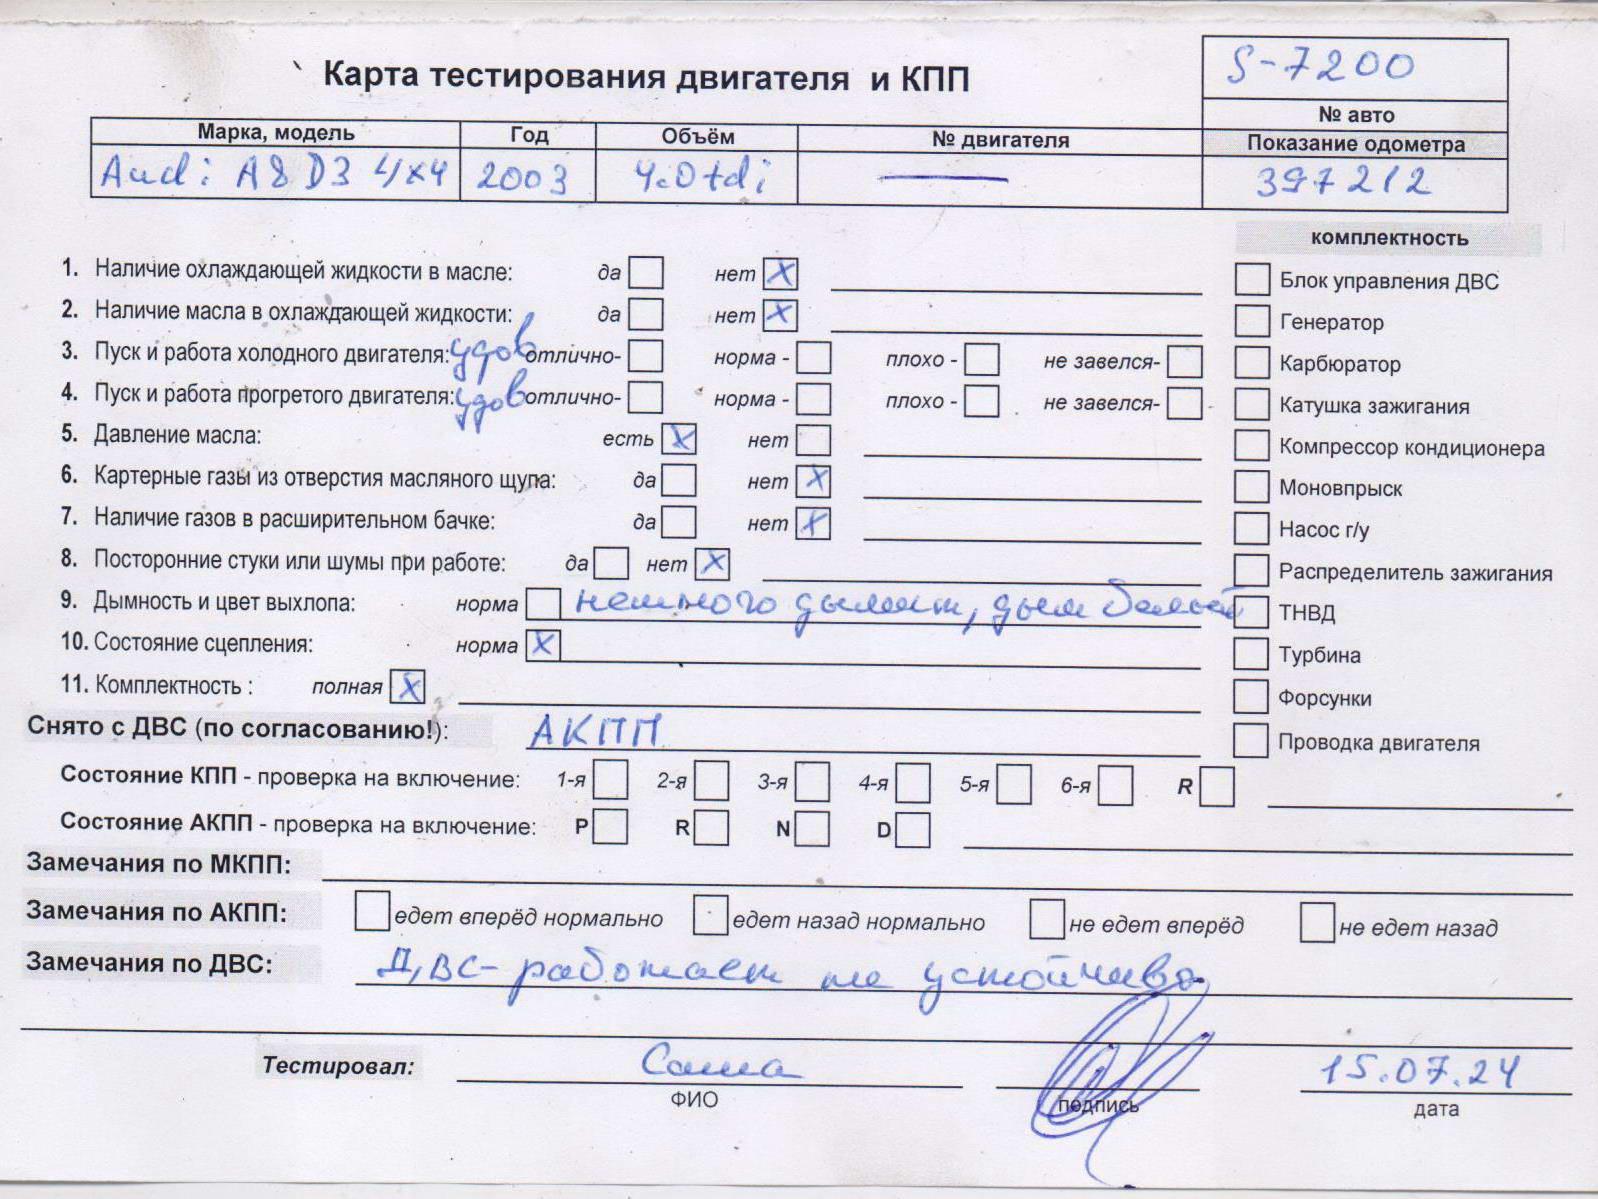 Карта тестирования двигателя и КПП
S-7200
№ авто
Марка, модель Год Объём № двигателя Показание одометра
Audi A8 D3 4x4 2003 4.0tdi — 397212
комплектность
1. Наличие охлаждающей жидкости в масле: да нет X
Блок управления ДВС
2. Наличие масла в охлаждающей жидкости: да нет X
Генератор
3. Пуск и работа холодного двигателя: удов отлично- норма - плохо - не завелся-
Карбюратор
4. Пуск и работа прогретого двигателя: удов отлично- норма - плохо - не завелся-
Катушка зажигания
5. Давление масла: есть X нет
Компрессор кондиционера
6. Картерные газы из отверстия масляного щупа: да нет X
Моновпрыск
7. Наличие газов в расширительном бачке: да нет X
Насос г/у
8. Посторонние стуки или шумы при работе: да нет X
Распределитель зажигания
9. Дымность и цвет выхлопа: норма немного дымит, дым белый
ТНВД
10. Состояние сцепления: норма X
Турбина
11. Комплектность : полная X
Форсунки
Снято с ДВС (по согласованию!): АКПП
Проводка двигателя
Состояние КПП - проверка на включение: 1-я 2-я 3-я 4-я 5-я 6-я R
Состояние АКПП - проверка на включение: P R N D
Замечания по МКПП:
Замечания по АКПП: едет вперёд нормально едет назад нормально не едет вперёд не едет назад
Замечания по ДВС: ДВС- работает не устойчиво
Тестировал: Саша 15.07.24
ФИО подпись дата